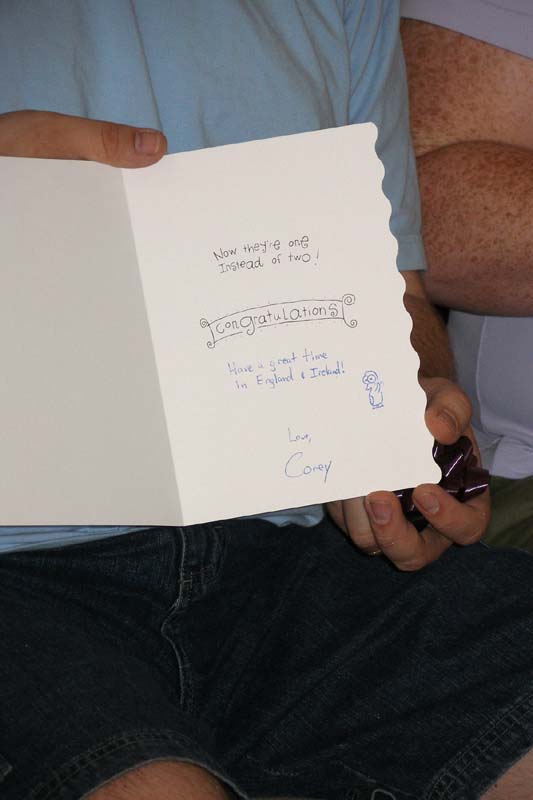 Now they're one
Instead of two!
congratulations
Have a great time
in England & Ireland!
Love,
Corey